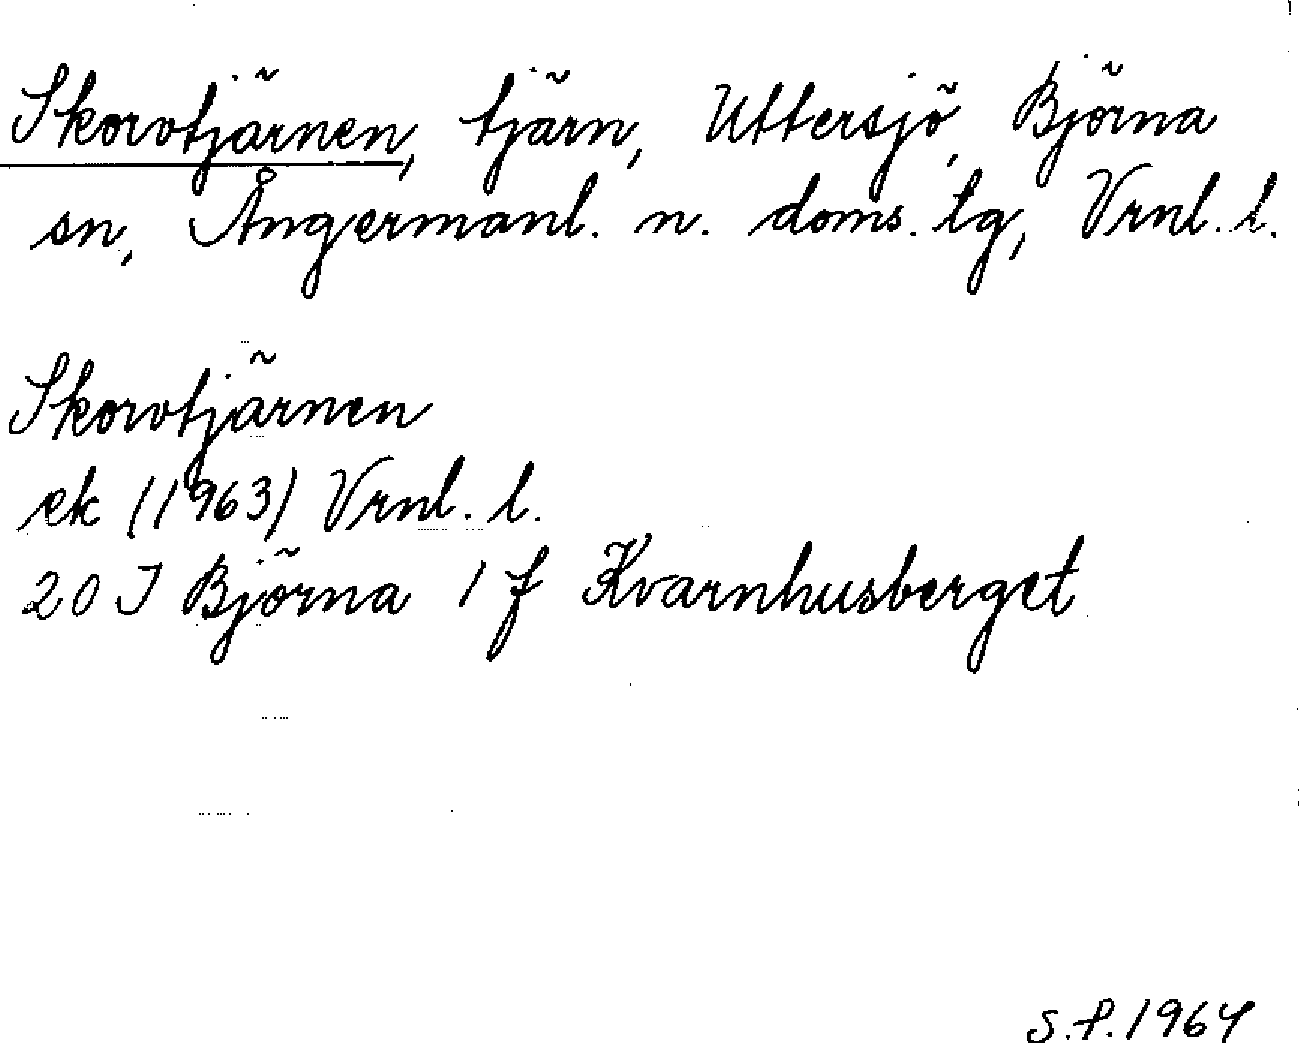 Skorvtjärnen, tjärn, Uttersjö, Björna
sn, Ångermanl. n. doms. lg, Vrnl. l.
Skorvtjärnen
ek (1963) Vrnl. l.
20 I Björna 1 f Kvarnhusberget
S.P. 1964